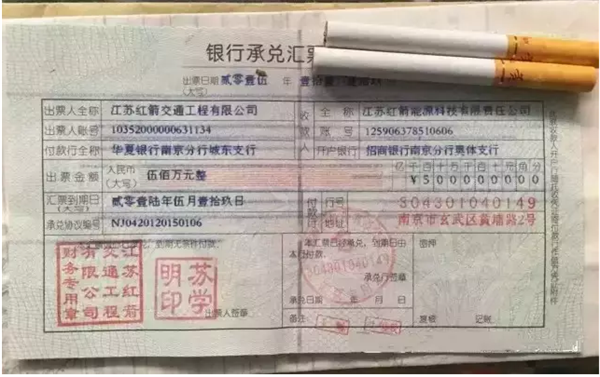 银行承兑汇票
出票日期 贰零壹伍 年 壹拾壹
（大写）
出票人全称 江苏红箭交通工程有限公司 收 全称 江苏红箭能源科技有限责任公司
出票人账号 10352000000631134 款 账号 125906378510606
付款行全称 华夏银行南京分行城东支行 人 开户银行 招商银行南京分行奥体支行
出票金额 人民币 伍佰万元整 亿千百十万千百十元角分
（大写） ¥500000000
汇票到期日 贰零壹陆年伍月壹拾玖日 付款行 行号 304301040149
（大写）
承兑协议编号 NJ0420120150106 地址 南京市玄武区黄埔路2号
到期无条件付款
本汇票已经承兑，到期日由
本行付款
密押
江苏红箭
交通工程
有限公司
财务专用章
苏学
明印
304301040149
承兑行签章
出票人签章
承兑日期 年 月 日
备注
复核 记账